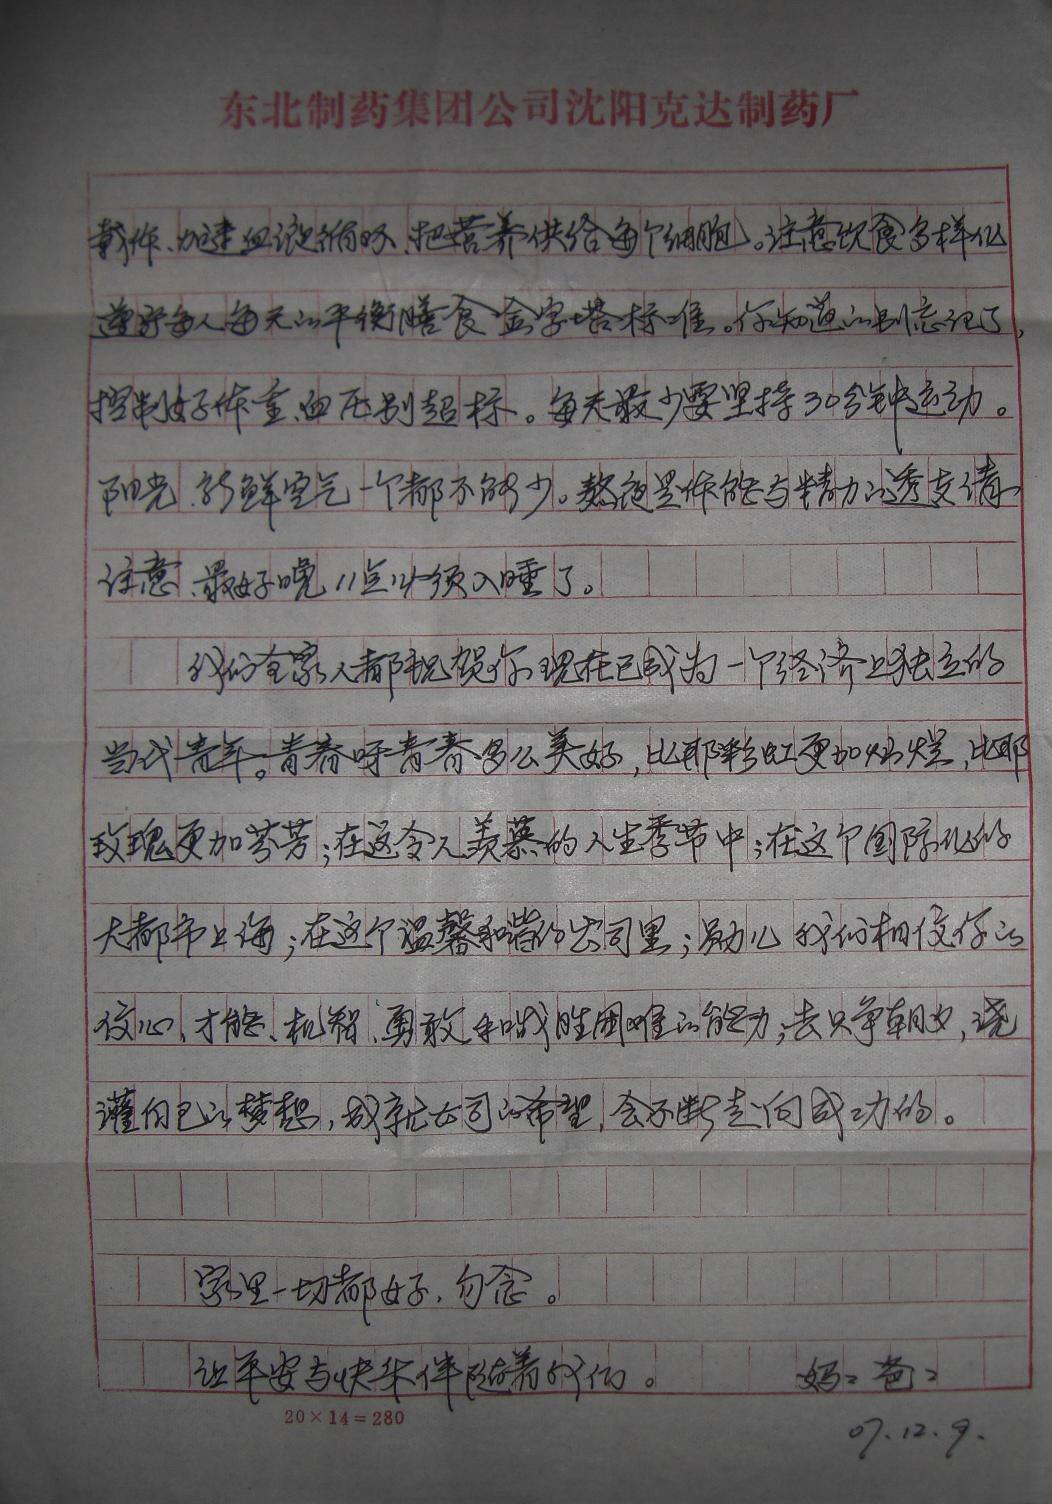 东北制药集团公司沈阳克达制药厂
动作、加速血液循环、把营养供给每个细胞。注意饮食多样化
遵守每人每天的平衡膳食金字塔标准。你知道的别忘记了,
控制好体重、血压别超标。每天最少要坚持30分钟运动。
阳光、新鲜空气一个都不能少。熬夜是体能与精力的透支请
注意、最好晚11点必须入睡了。
我们全家人都祝贺你现在已成为一个经济上独立的
当代青年。青春呀青春多么美好,比那彩虹更加灿烂,比那
玫瑰更加芬芳;在这令人羡慕的人生季节中;在这个国际化的
大都市上海;在这个温馨和谐的公司里;勋儿 我们相信你的
信心、才能、机智、勇敢和战胜困难的能力;去只争朝夕,浇
灌自己的梦想,成就公司的希望,会不断走向成功的。
家里一切都好,勿念。
让平安与快乐伴随着我们。 妈妈 爸爸
07.12.9.
20×14=280